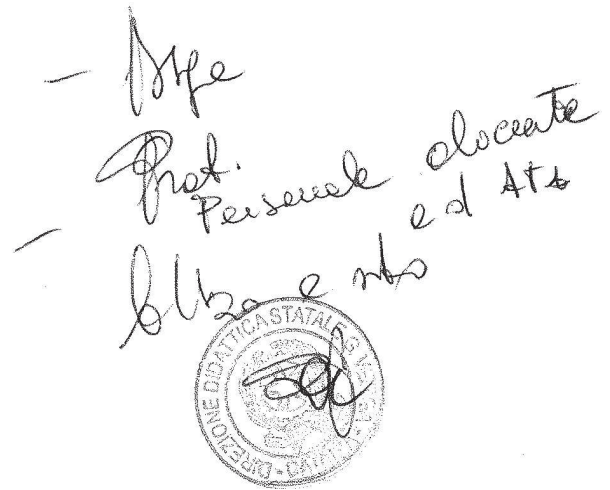 Prot.
Personale docente
ed ATA
Albo e sito
DIREZIONE DIDATTICA STATALE G. VERGA